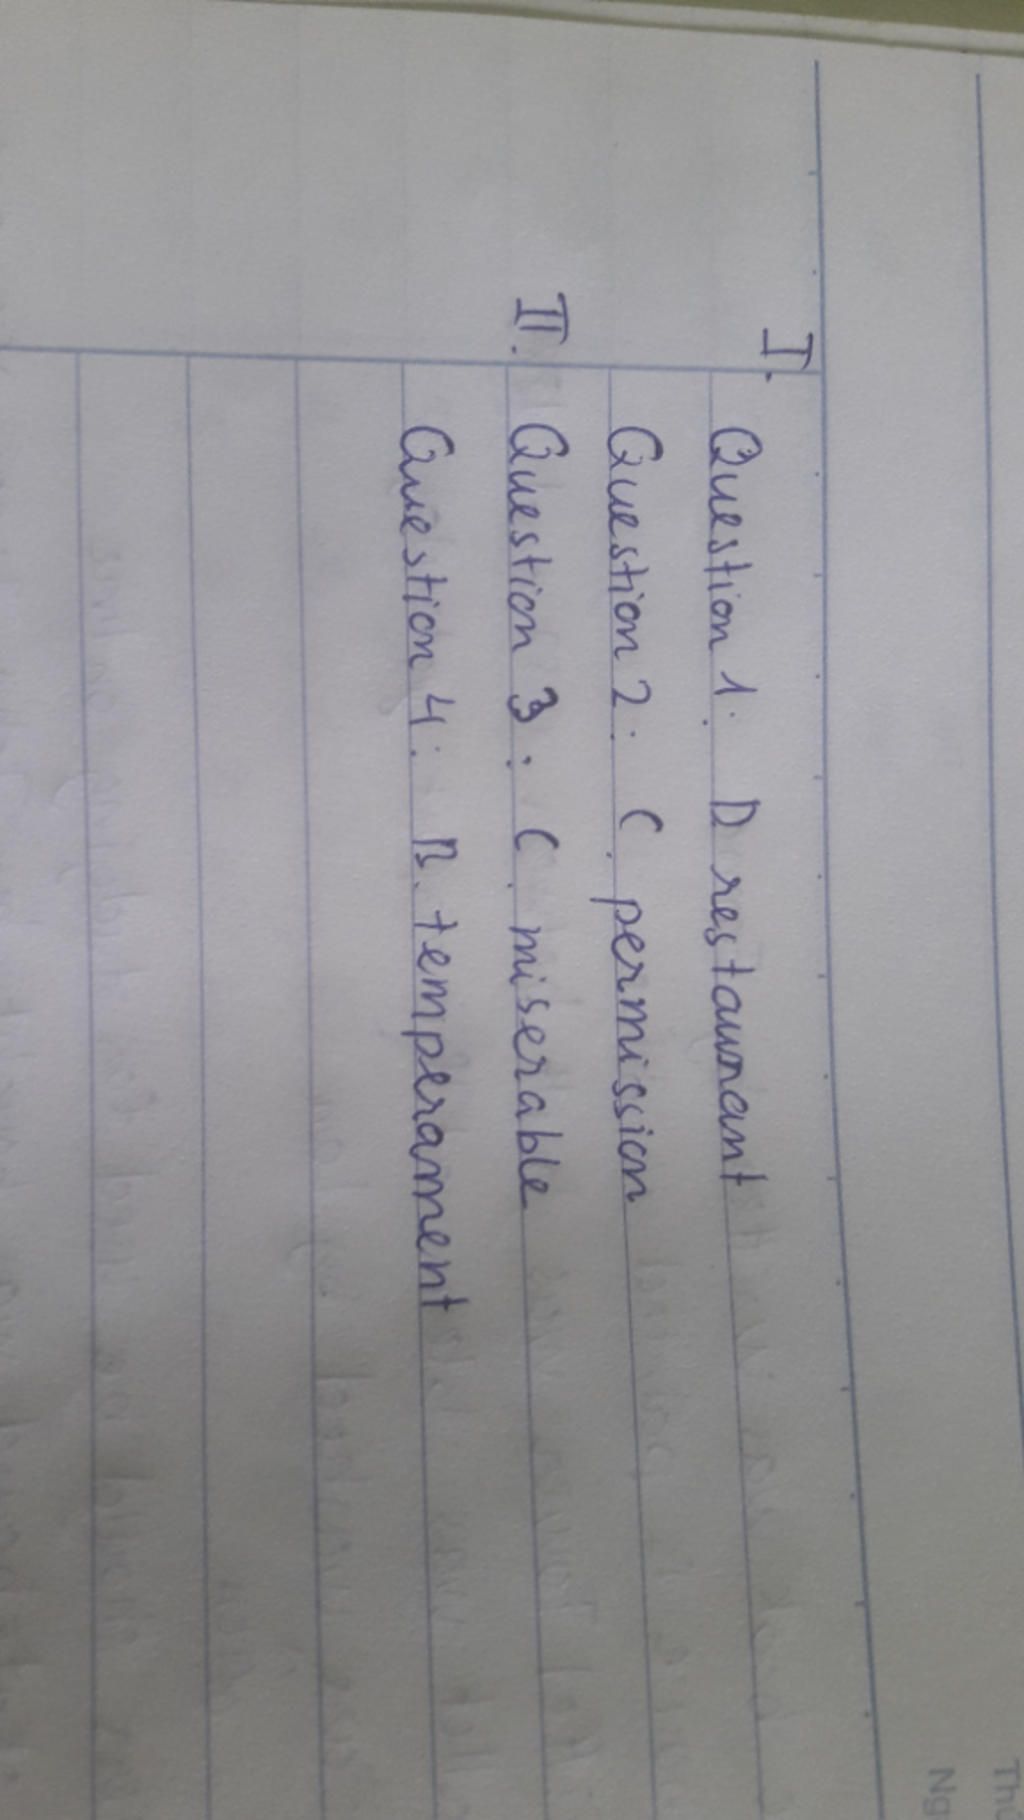 I. Question 1: D restaurant
Question 2: C. permission
II. Question 3: C. miserable
Question 4: B. temperament
Ng